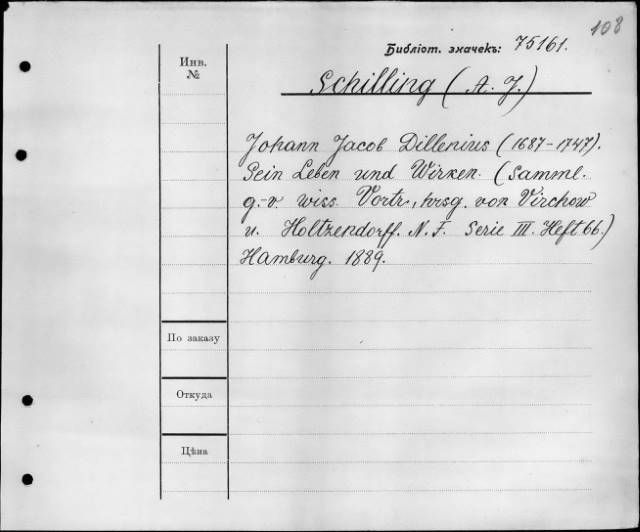 108
Библіот. значекъ: 75161.
Инв.
№
Schilling (A. J.)
Johann Jacob Dillenius (1687-1747).
Sein Leben und Wirken. (Samml.
g.-v. wiss. Vortr., hrsg. von Virchow
u. Holtzendorff. N. F. Serie III. Heft 66.)
Hamburg. 1889.
По заказу
Откуда
Цѣна